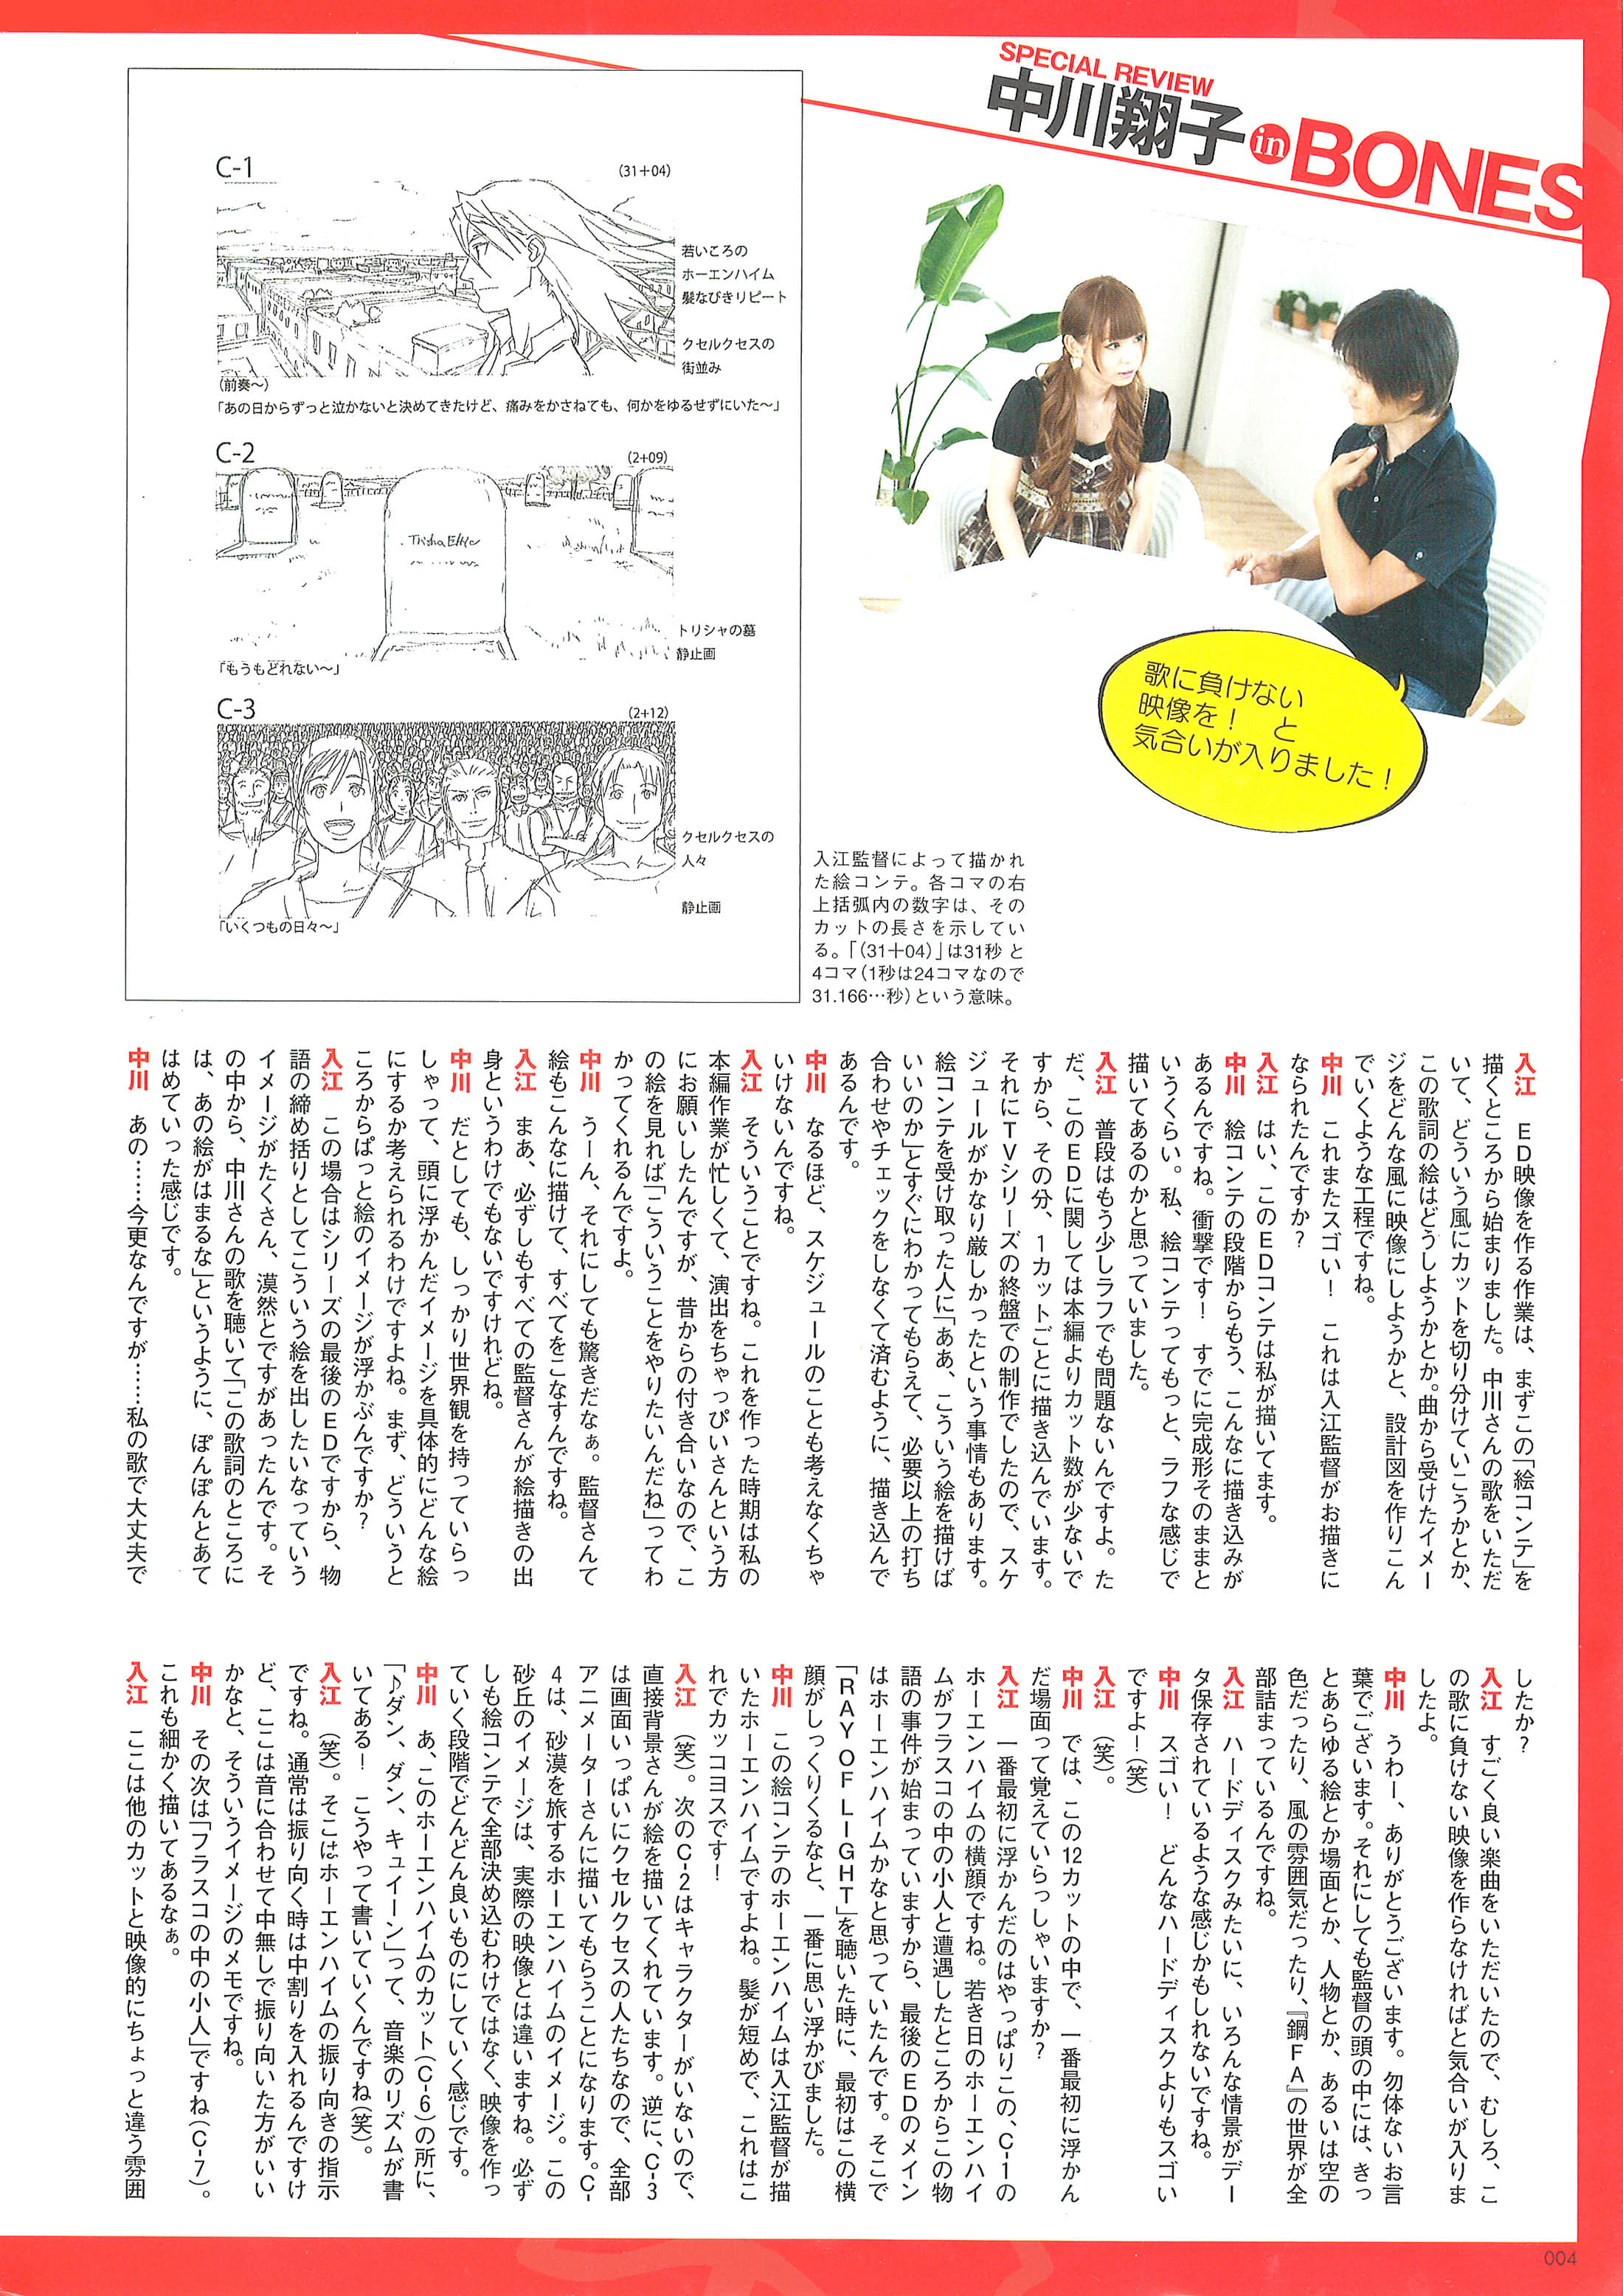 SPECIAL REVIEW
中川翔子 in BONES
C-1
(31+04)
若いころの
ホーエンハイム
髪なびきリピート
クセルクセスの
街並み
(前奏〜)
「あの日からずっと泣かないと決めてきたけど、痛みをかさねても、何かをゆるせずにいた〜」
C-2
(2+09)
Trisha Elric
トリシャの墓
静止画
「もうもどれない〜」
C-3
(2+12)
クセルクセスの
人々
静止画
「いくつもの日々〜」
歌に負けない
映像を! と
気合いが入りました!
入江監督によって描かれ
た絵コンテ。各コマの右
上括弧内の数字は、その
カットの長さを示してい
る。「(31+04)」は31秒と
4コマ(1秒は24コマなので
31.166…秒)という意味。
入江 ED映像を作る作業は、まずこの「絵コンテ」を
描くところから始まりました。中川さんの歌をいただ
いて、どういう風にカットを切り分けていこうかとか、
この歌詞の絵はどうしようかとか。曲から受けたイメー
ジをどんな風に映像にしようかと、設計図を作りこん
でいくような工程ですね。
中川 これまたスゴい! これは入江監督がお描きに
なられたんですか?
入江 はい、このEDコンテは私が描いてます。
中川 絵コンテの段階からもう、こんなに描き込みが
あるんですね。衝撃です! すでに完成形そのままと
いうくらい。私、絵コンテってもっと、ラフな感じで
描いてあるのかと思っていました。
入江 普段はもう少しラフでも問題ないんですよ。た
だ、このEDに関しては本編よりカット数が少ないで
すから、その分、1カットごとに描き込んでいます。
それにTVシリーズの終盤での制作でしたので、スケ
ジュールがかなり厳しかったという事情もあります。
絵コンテを受け取った人に「ああ、こういう絵を描けば
いいのか」とすぐにわかってもらえて、必要以上の打ち
合わせやチェックをしなくて済むように、描き込んで
あるんです。
中川 なるほど、スケジュールのことも考えなくちゃ
いけないんですね。
入江 そういうことですね。これを作った時期は私の
本編作業が忙しくて、演出をちゃっぴいさんという方
にお願いしたんですが、昔からの付き合いなので、こ
の絵を見れば「こういうことをやりたいんだね」ってわ
かってくれるんですよ。
中川 うーん、それにしても驚きだなぁ。監督さんて
絵もこんなに描けて、すべてをこなすんですね。
入江 まあ、必ずしもすべての監督さんが絵描きの出
身というわけでもないですけれどね。
中川 だとしても、しっかり世界観を持っていらっ
しゃって、頭に浮かんだイメージを具体的にどんな絵
にするか考えられるわけですよね。まず、どういうと
ころからぱっと絵のイメージが浮かぶんですか?
入江 この場合はシリーズの最後のEDですから、物
語の締め括りとしてこういう絵を出したいなっていう
イメージがたくさん、漠然とですがあったんです。そ
の中から、中川さんの歌を聴いて「この歌詞のところに
は、あの絵がはまるな」というように、ぽんぽんとあて
はめていった感じです。
中川 あの……今更なんですが……私の歌で大丈夫で
したか?
入江 すごく良い楽曲をいただいたので、むしろ、こ
の歌に負けない映像を作らなければと気合いが入りま
したよ。
中川 うわー、ありがとうございます。勿体ないお言
葉でございます。それにしても監督の頭の中には、きっ
とあらゆる絵とか場面とか、人物とか、あるいは空の
色だったり、風の雰囲気だったり、『鋼FA』の世界が全
部詰まっているんですね。
入江 ハードディスクみたいに、いろんな情景がデー
タ保存されているような感じかもしれないですね。
中川 スゴい! どんなハードディスクよりもスゴい
ですよ!(笑)
入江 (笑)。
中川 では、この12カットの中で、一番最初に浮かん
だ場面って覚えていらっしゃいますか?
入江 一番最初に浮かんだのはやっぱりこの、C-1の
ホーエンハイムの横顔ですね。若き日のホーエンハイ
ムがフラスコの中の小人と遭遇したところからこの物
語の事件が始まっていますから、最後のEDのメイン
はホーエンハイムかなと思っていたんです。そこで
「RAY OF LIGHT」を聴いた時に、最初はこの横
顔がしっくりくるなと、一番に思い浮かびました。
中川 この絵コンテのホーエンハイムは入江監督が描
いたホーエンハイムですよね。髪が短めで、これはこ
れでカッコヨスです!
入江 (笑)。次のC-2はキャラクターがいないので、
直接背景さんが絵を描いてくれています。逆に、C-3
は画面いっぱいにクセルクセスの人たちなので、全部
アニメーターさんに描いてもらうことになります。C-
4は、砂漠を旅するホーエンハイムのイメージ。この
砂丘のイメージは、実際の映像とは違いますね。必ず
しも絵コンテで全部決め込むわけではなく、映像を作っ
ていく段階でどんどん良いものにしていく感じです。
中川 あ、このホーエンハイムのカット(C-6)の所に、
「♪ダン、ダン、キュイーン」って、音楽のリズムが書
いてある! こうやって書いていくんですね(笑)。
入江 (笑)。そこはホーエンハイムの振り向きの指示
ですね。通常は振り向く時は中割りを入れるんですけ
ど、ここは音に合わせて中無しで振り向いた方がいい
かなと、そういうイメージのメモですね。
中川 その次は「フラスコの中の小人」ですね(C-7)。
これも細かく描いてあるなぁ。
入江 ここは他のカットと映像的にちょっと違う雰囲
004